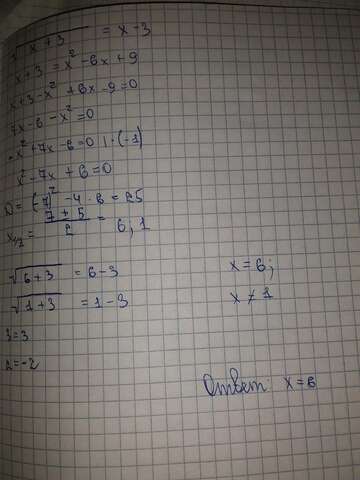 √x+3 = x-3
x+3 = x²-6x+9
x+3-x²+6x-9=0
7x-6-x²=0
-x²+7x-6=0 |·(-1)
x²-7x+6=0
D=(-7)²-4·6=25
x₁,₂= 7±5/2 = 6, 1
√6+3 = 6-3
x=6;
√1+3 = 1-3
x≠1
3=3
2=-2
Ответ: x=6